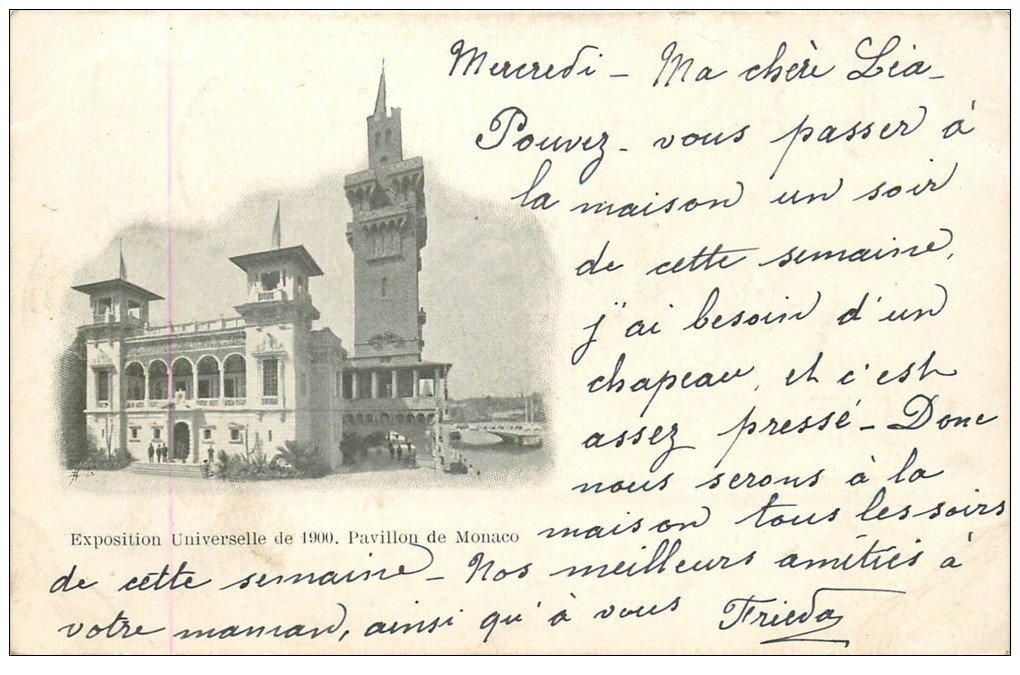 Mercredi - Ma chère Léa -
Pouvez-vous passer à
la maison un soir
de cette semaine,
j'ai besoin d'un
chapeau, et c'est
assez pressé - Donc
nous serons à la
maison tous les soirs
Exposition Universelle de 1900. Pavillon de Monaco
de cette semaine - Nos meilleurs amitiés à
votre maman, ainsi qu'à vous Frieda